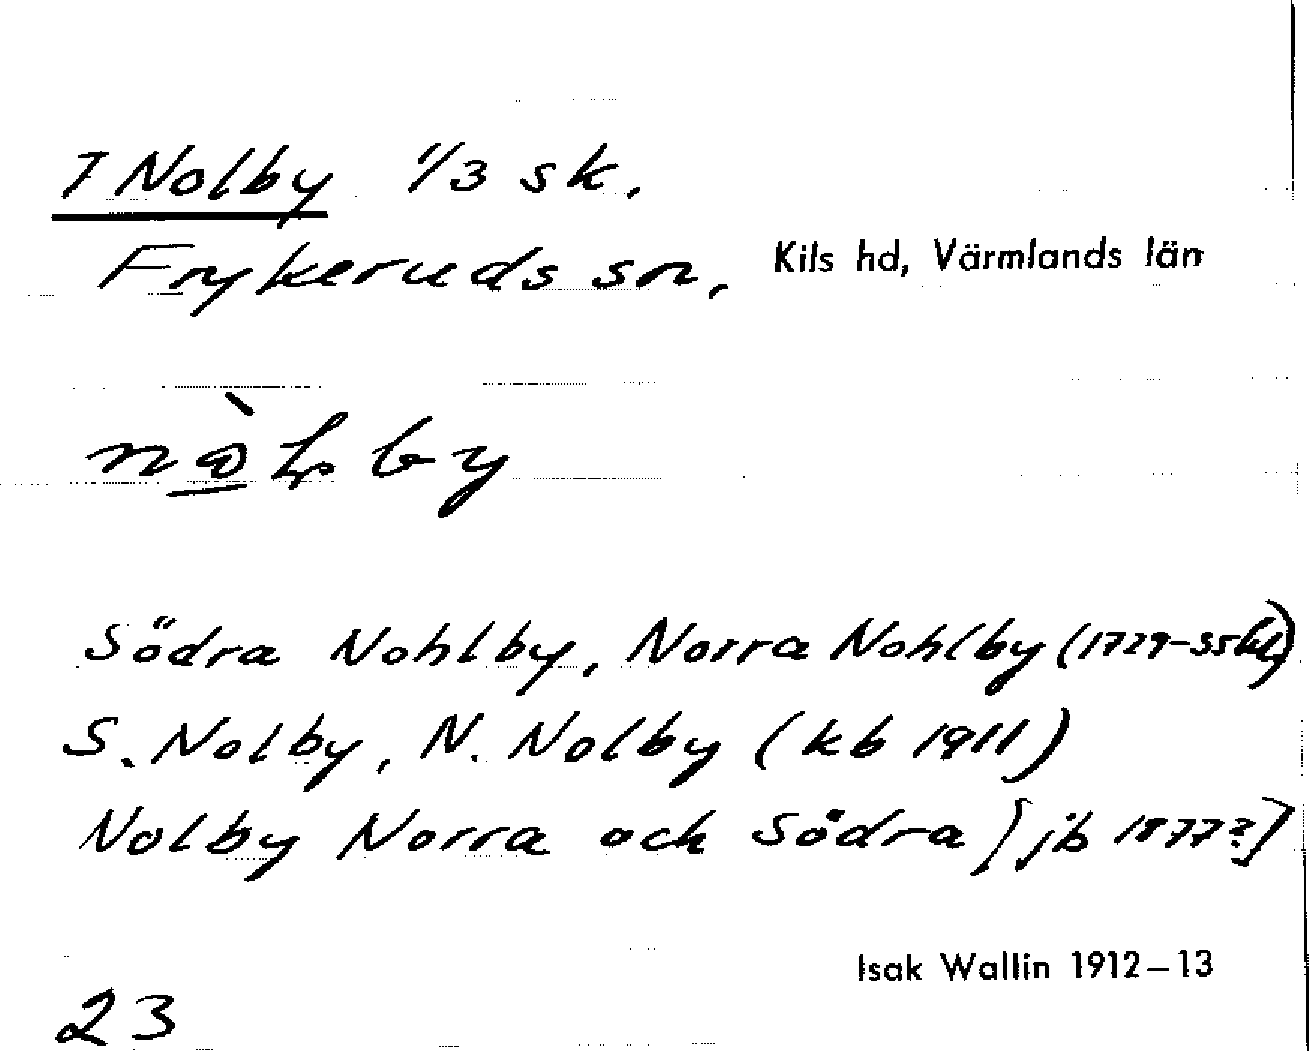 7 Nolby 1/3 sk.
Frykeruds sn, Kils hd, Värmlands län
Södra Nohlby, Norra Nohlby (1729-35
S. Nolby, N. Nolby (kb 1911)
Nolby Norra och Södra [jb 1877?]
Isak Wallin 1912–13
23